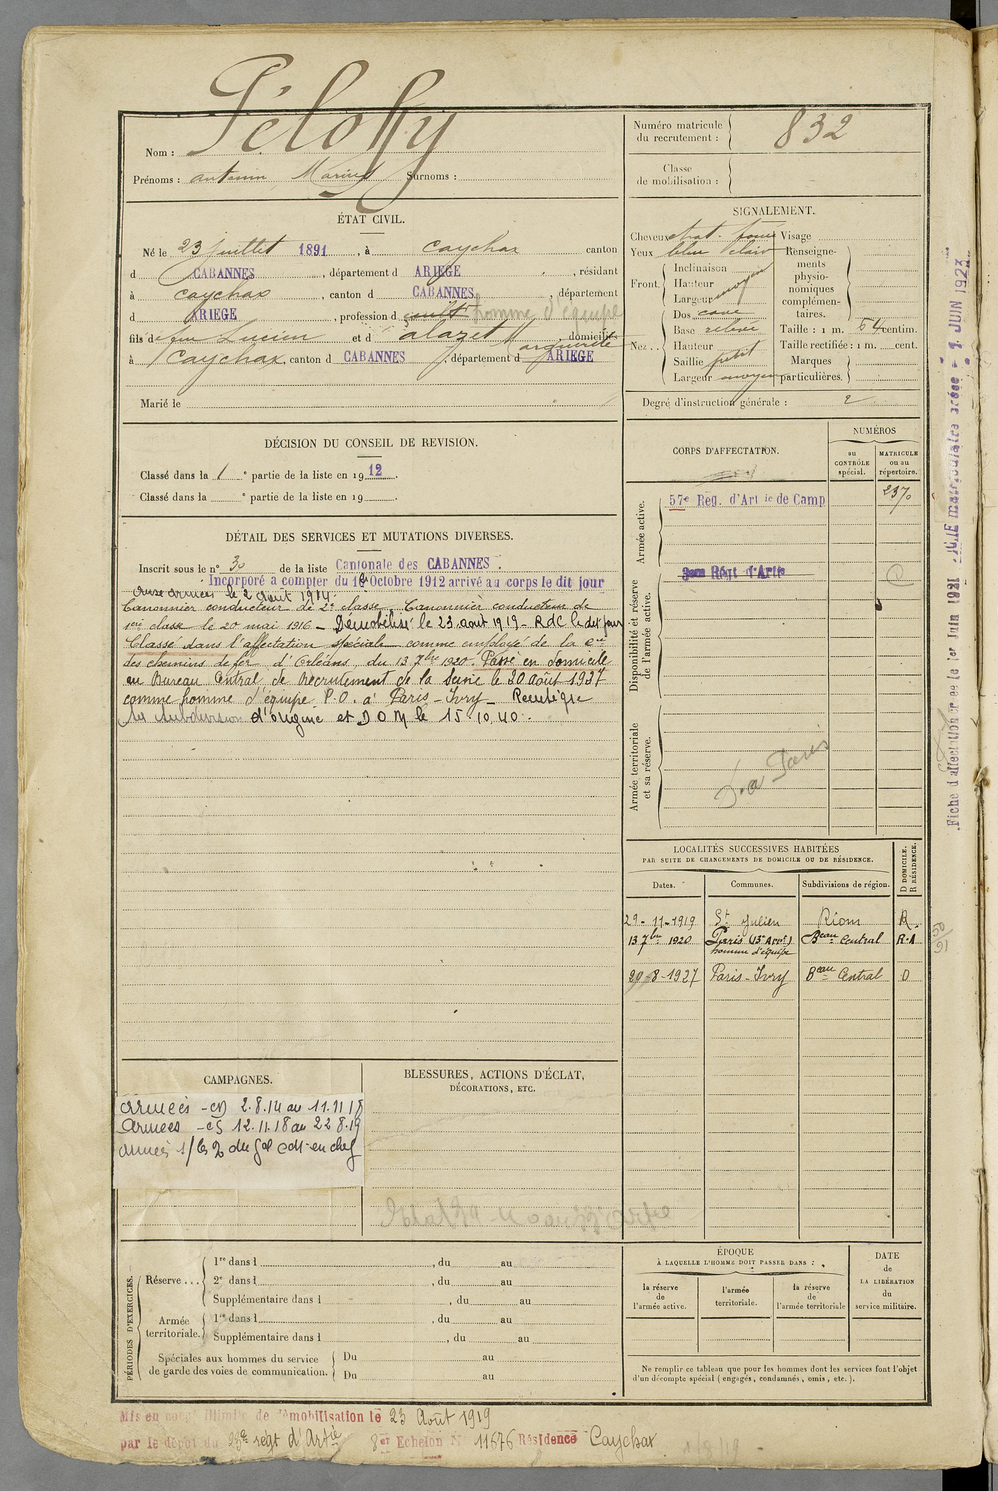 Nom : Péloffy
Prénoms : antonin Marius Surnoms :
Numéro matricule du recrutement : 832
Classe de mobilisation :
ÉTAT CIVIL.
Né le 23 juillet 1891, à Caychax canton
d CABANNES, département d ARIEGE, résidant
à Caychax, canton d CABANNES, département
d ARIEGE, profession d cult homme d'équipe
fils de feu Lucien et d alazet Marguerite, domiciliés
à Caychax, canton d CABANNES, département d ARIEGE
Marié le
SIGNALEMENT.
Cheveux chat. foncé Visage
Yeux bleu clair
Front. Inclinaison
Hauteur
Largeur moyen
Renseignements physionomiques complémentaires.
Nez.. Dos cave
Base relevé
Hauteur
Saillie petit
Largeur moyen
Taille : 1 m. 54 centim.
Taille rectifiée : 1 m. cent.
Marques particulières.
Degré d'instruction générale : 2
DÉCISION DU CONSEIL DE REVISION.
Classé dans la 1 e partie de la liste en 1912.
Classé dans la e partie de la liste en 19
DÉTAIL DES SERVICES ET MUTATIONS DIVERSES.
Inscrit sous le n° 30 de la liste Cantonale des CABANNES.
Incorporé à compter du 10 Octobre 1912 arrivé au corps le dit jour
aux armées le 2 août 1914.
Canonnier conducteur de 2e classe. Canonnier conducteur de
1ere classe le 20 mai 1916 – Démobilisé le 23 août 1919 – RdC le dit jour
Classé dans l'affectation spéciale comme employé de la Cie
des chemins de fer d'Orléans, du 13 7bre 1920. Passé en domicile
au Bureau Central de Recrutement de la Seine le 20 août 1927
comme homme d'équipe P.O. à Paris-Ivry – Réintègre
sa subdivision d'origine et DOM le 15.10.40.
CORPS D'AFFECTATION.
NUMÉROS
au CONTRÔLE spécial.
MATRICULE ou au répertoire.
Armée active.
57e Rég. d'Artie de Camp 2370
Disponibilité et réserve de l'armée active.
Régt d'Artie
Armée territoriale et sa réserve.
P.O. à Paris
LOCALITÉS SUCCESSIVES HABITÉES
PAR SUITE DE CHANGEMENTS DE DOMICILE OU DE RÉSIDENCE.
Dates. Communes. Subdivisions de région. D DOMICILE. R RÉSIDENCE.
29-11-1919 St Julien Riom R.
13 7bre 1920 Paris (13e Arrt) Beau Central R.A
homme d'équipe
20-8-1927 Paris-Ivry Beau Central D
CAMPAGNES.
armées – CD 2.8.14 au 11.11.18
armées – CS 12.11.18 au 22.8.19
BLESSURES, ACTIONS D'ÉCLAT,
DÉCORATIONS, ETC.
PÉRIODES D'EXERCICES.
Réserve... 1re dans l , du au
2e dans l , du au
Supplémentaire dans l , du au
Armée territoriale. 1re dans l , du au
Supplémentaire dans l , du au
Spéciales aux hommes du service de garde des voies de communication. Du au
Du au
ÉPOQUE
À LAQUELLE L'HOMME DOIT PASSER DANS :
la réserve de l'armée active.
l'armée territoriale.
la réserve de l'armée territoriale
DATE de LA LIBÉRATION du service militaire.
Ne remplir ce tableau que pour les hommes dont les services font l'objet
d'un décompte spécial (engagés, condamnés, omis, etc.).
Mis en congé illimité de démobilisation le 23 Août 1919
par le dépôt du régt d'Artie 8er Echelon N° 11676 Résidence Caychax